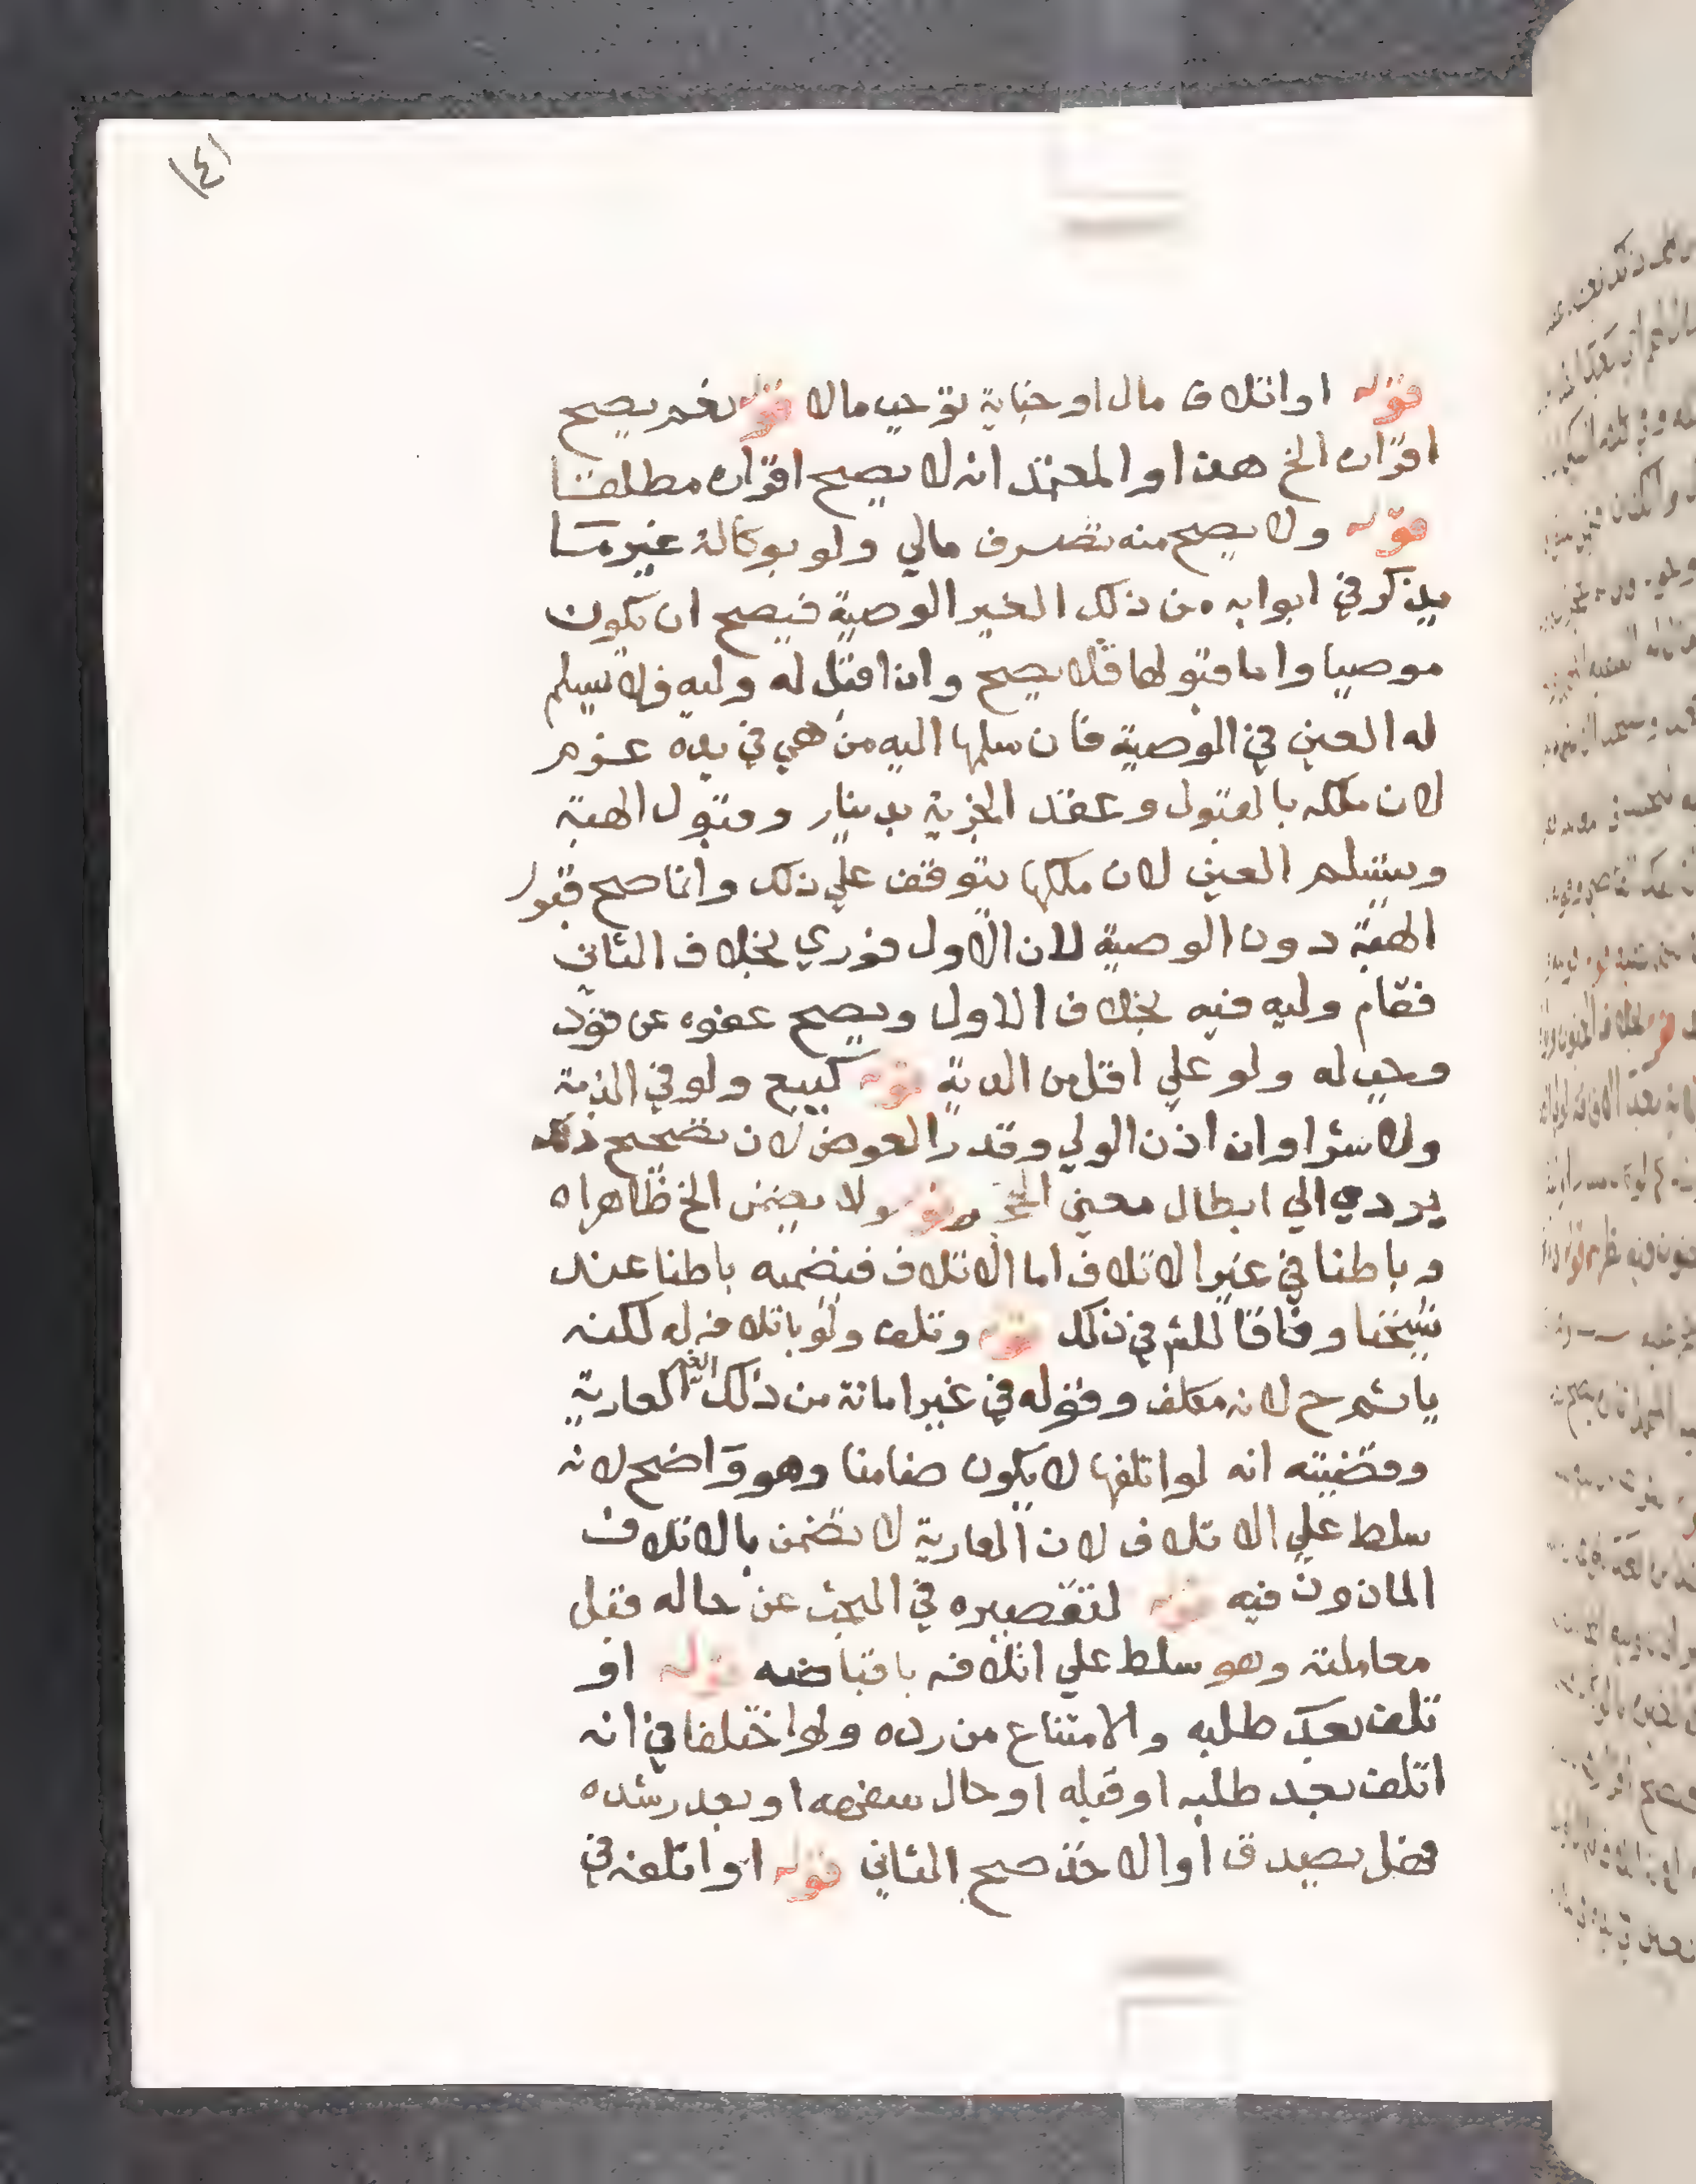 ١٤١
قوله او اتلاف مال او جناية توجب مالا قوله نعم يصح
اقراره الخ هذا والمعتمد انه لا يصح اقراره مطلقا
قوله ولا يصح منه تصرف مالي ولو بوكالة غير ما
يذكر في ابوابه من ذلك الغير الوصية فيصح ان يكون
موصيا واما قبولها فلا يصح وان اقبل له وليه ولا يسلم
له العين في الوصية فان سلمها اليه من هي في يده غرم
لان ملكه بالقبول وعقد الجزية بدينار وقبول الهبة
ويتسلم العين لان ملكها يتوقف على ذلك وانما صح قبول
الهبة دون الوصية لان الاول فوري بخلاف الثاني
فقام وليه فيه بخلاف الاول ويصح عفوه عن قود
وجب له ولو علي اقل من الدية قوله كبيع ولو في الذمة
ولا شراء وان اذن الولي وقدر العوض لان تصحيح ذلك
يودي الي ابطال معني الحجر قوله ولا يضمن الخ ظاهرا ه
وباطنا في غير الاتلاف اما الاتلاف فيضمنه باطنا عند
شيخنا وفاقا للشم في ذلك قوله وتلف ولو باتلافه له لكنه
ياثم رح لانه مكلف وقوله في غير امانة من ذلك الغير العارية
وقضيته انه لو اتلفها لا يكون ضامنا وهو واضح لانه
سلط علي الاتلاف لان العارية لا تضمن بالاتلاف
الماذون فيه قوله لتقصيره في البحث عن حاله قبل
معاملته وهو سلط علي اتلافه باقباضه قوله او
تلف بعد طلبه والامتناع من رده ولو اختلفا في انه
اتلف بعد طلبه او قبله او حال سفهه او بعد رشده
فهل يصدق او الاخذ صح الثاني قوله او اتلفه في